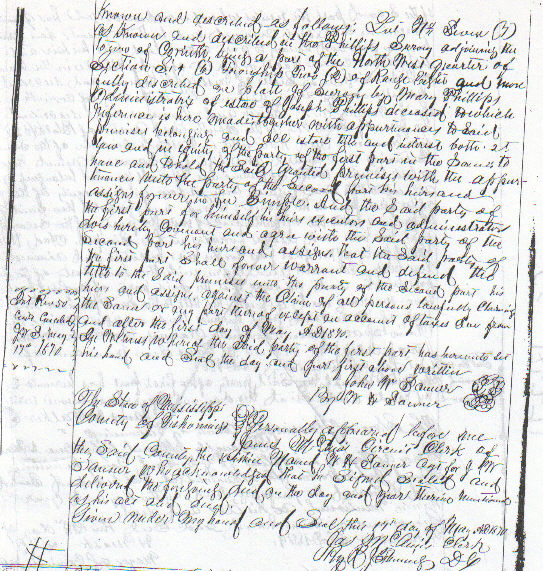 Known and described as follows. Lot No Seven (7)
as Known and described in the Phillips Survey adjoining the
town of Corinth being a part of the North West quarter of
Section Six (6) Township Two (2) of Range Eight and more
fully described in Platt of Survey by Mary Phillips
Administratrix of estate of Joseph Phillips deceased to which
reference is here made together with appurtenances to Said
premises belonging and all estate title and interest both at
law and in equity of the party of the first part in the Same to
have and to hold the Said granted premises with the appur-
tenances unto the party of the Second part his heirs and
assigns forever in fee Simple. And the Said party of
the first part for himself his heirs executors and administrators
does hereby Covenant and agree with the Said party of the
Second part his heirs and assigns. that the Said party of
the first part Shall forever Warrant and defend the
title to the Said premises unto the party of the Second part his
heirs and assigns against the Claim of all persons lawfully Claiming
the Same or any part thereof except on account of taxes due from
and after the first day of May AD 1870.
In Witness whereof the Said party of the first part has hereunto set
his hand and Seal the day and year first above written
John W Sanner
By W H Sanner
Int Rev 50
Cents Cancelled
May
17th 1870
The State of Mississippi
County of Tishomingo
Personally appeared before me
Circuit Clerk of
the Said County the within Named W H Sanner Agt for J W
Sanner who acknowledged that he Signed Sealed and
delivered the foregoing deed on the day and year therein mentioned
as his act and deed.
Given under my hand and Seal this 17th day of May AD 1870
Clerk
By D C